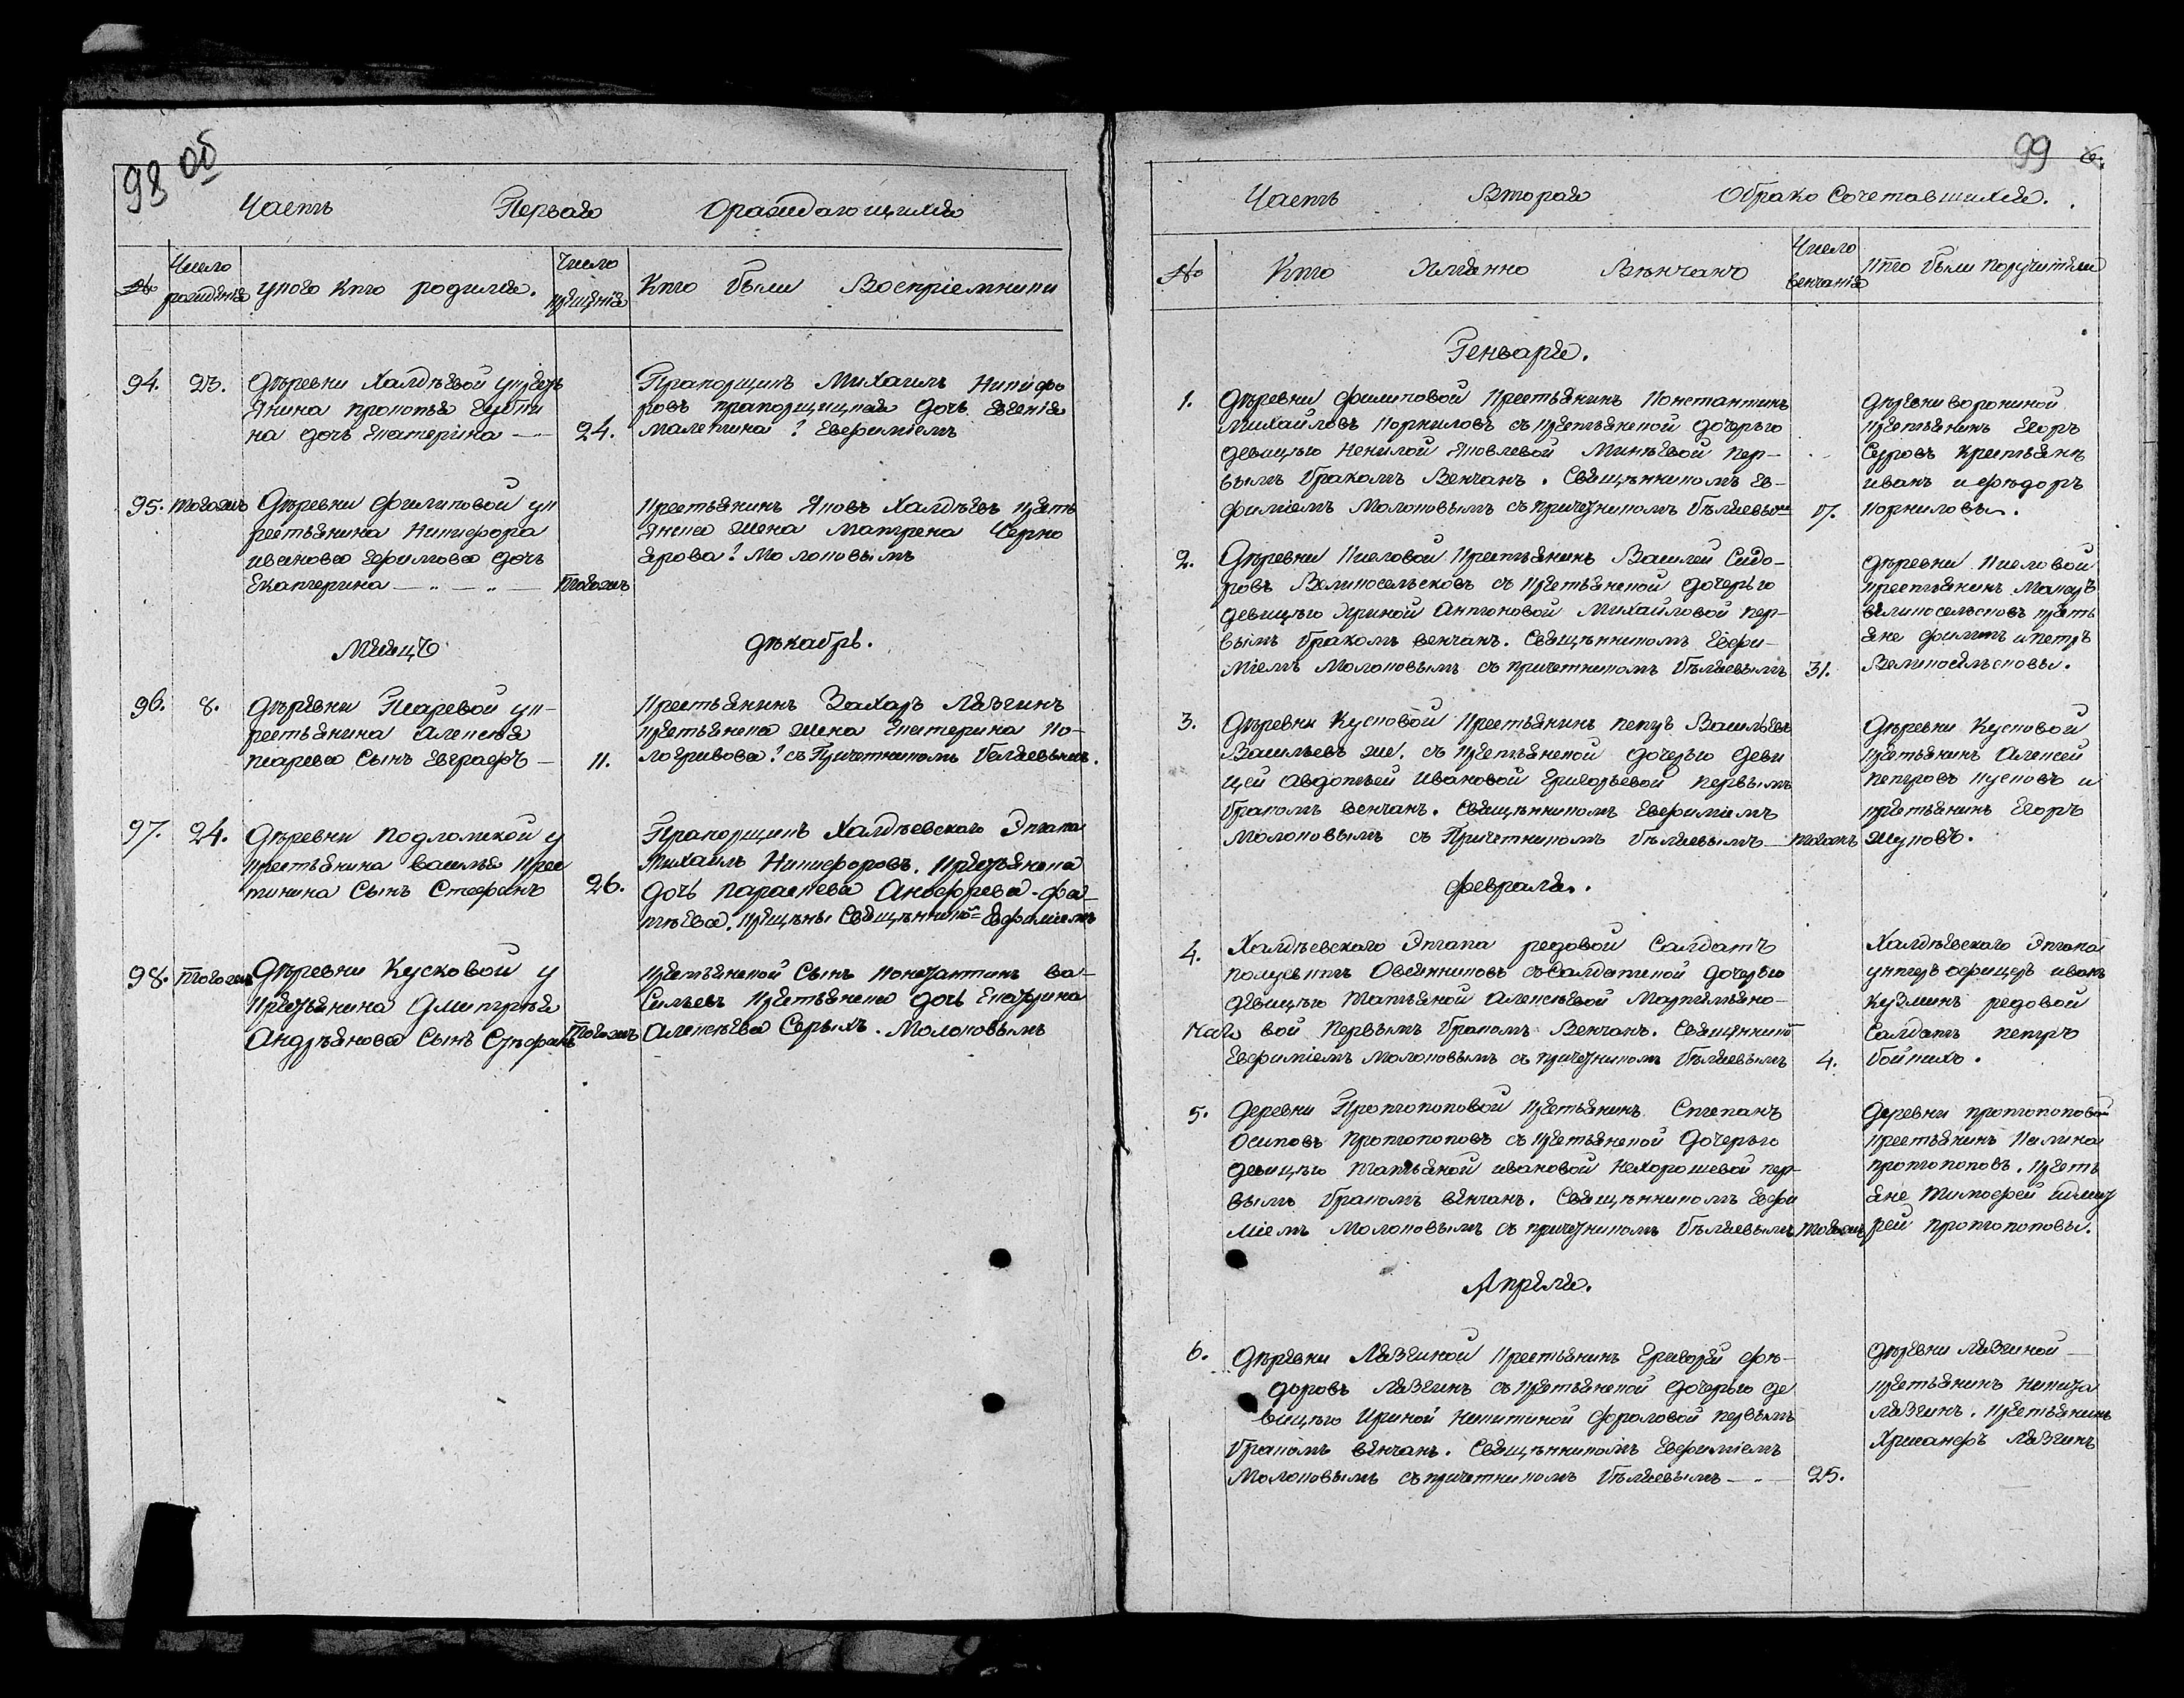 98 об
Часть Первая о раждающихся
№ Число рожденія у кого кто родился. Число крещенія Кто были Воспріемники
94. 23. Деревни Халдѣевой у крестъ
янина прокопья
на дочь Екатерина — 24.
Прапорщикъ Михаилъ Никифо
ровъ прапорщицкая дочь Евгенія
Малегина ? Евфиміемъ
95. тогожъ Деревни Филиповой у к
рестьянина Никифора
иванова Ефимова дочь
Екатерина — „ — „ — тогожъ
Крестьянинъ Яковъ Халдѣевъ кресть
янска жена Матрена Черно
ярова ? Молоковымъ
Мѣсяцъ декабрь.
96. 8. деревни Писаревой у к-
рестьянина Алексѣя
писарева Сынъ Евграфъ — 11.
Крестьянинъ Захаръ Лязгинъ
крестьянска жена Екатерина Ко-
логривова ? съ Причетникомъ Бѣляевымъ.
97. 24. Деревни подломской у
крестьянина василья Крас
тинина Сынъ Стефанъ 26.
Прапорщикъ Халдѣевскаго Этапа
Михаилъ Никифоровъ. крестьянска
дочь параскева Анофрева-Фа-
тѣева. крещены Священникомъ Евфиміемъ
98. Тогожъ Деревни Кусковой у
крестьянина Дмитрѣя
Андрѣянова Сынъ Стефанъ Тогожъ
крестьянской Сынъ константинъ ва-
сильевъ крестьянска дочь Екатерина
Алексѣева Серыхъ. Молоковымъ
99
Часть Вторая О брако Сочетавшихся.
№ Кто Имянно Вѣнчанъ Число венчанія Кто были поручители
Генваря.
1. Деревни Филиповой крестьянинъ Константинъ
Михайловъ Корниловъ съ крестьянской дочерью
девицъю Ненилой Яковлевой Минѣевой пер-
вымъ бракомъ Венчанъ. Священникомъ Ев-
фиміемъ Молоковымъ съ причетникомъ Бѣляевымъ 17.
Деревни ворониной
крестьянинъ Егоръ
Серовъ крестьяне
иванъ и фѣдоръ
Корниловы.
2. Деревни Киселовой крестьянинъ Василей Сидо-
ровъ Великосельсковъ съ крестьянской дочерью
девицъю Ириной Антоновой Михайловой пер-
вымъ бракомъ венчанъ. Священникомъ Евфи-
міемъ Молоковымъ съ причетникомъ Бѣляевымъ 31.
Деревни Киселовой
крестьянинъ Макаръ
великосельсковъ кресть
яне филипъ и петръ
Великосельсковы.
3. Деревни Кусковой крестьянинъ петръ Васильевъ
Васильевъ же. съ крестьянской дочерью деви
цей Авдотьей Ивановой Григорьевой первымъ
бракомъ венчанъ. Священникомъ Евфиміемъ
Молоковымъ съ Причетникомъ Бѣляевымъ — тогожъ
Деревни Кусковой
крестьянинъ Алексей
петровъ кусковъ и
крестьянинъ Егоръ
жуковъ.
Февраля.
4. Халдѣевскаго Этапа редовой Салдатъ
Овсянниковъ съ Салдатской дочерью
девицъю Татьяной Алексѣевой Мартемьяно-
вой Первымъ бракомъ Венчанъ. Священникомъ
Евфиміемъ Молоковымъ съ причетникомъ Бѣляевымъ 4.
Халдѣевскаго Этапа
унтеръ офицеръ иванъ
кузминъ редовой
Салдатъ петръ
бойкихъ.
5. Деревни Протопоповой крестьянинъ Степанъ
Осиповъ протопоповъ съ крестьянской дочерью
девицъю татьяной ивановой нехорошевой пер-
вымъ бракомъ вѣнчанъ. Священникомъ Евфи
міемъ Молоковымъ съ причетникомъ Бѣляевымъ тогожъ
Деревни протопоповой
крестьянинъ
протопоповъ. кресть
яне Тимофей идмит
рей протопоповы.
Апреля.
6. Деревни Лязгиной крестьянинъ Григорей фе-
доровъ Лязгинъ съ крестьянской дочерью де
вицъю Ириной Никитиной Фроловой первымъ
бракомъ вѣнчанъ. Священникомъ Евфиміемъ
Молоковымъ съ причетникомъ Бѣляевымъ — 25.
Деревни Лязгиной —
крестьянинъ никита
Лязгинъ. крестьянинъ
Хрисанфъ Лязгинъ